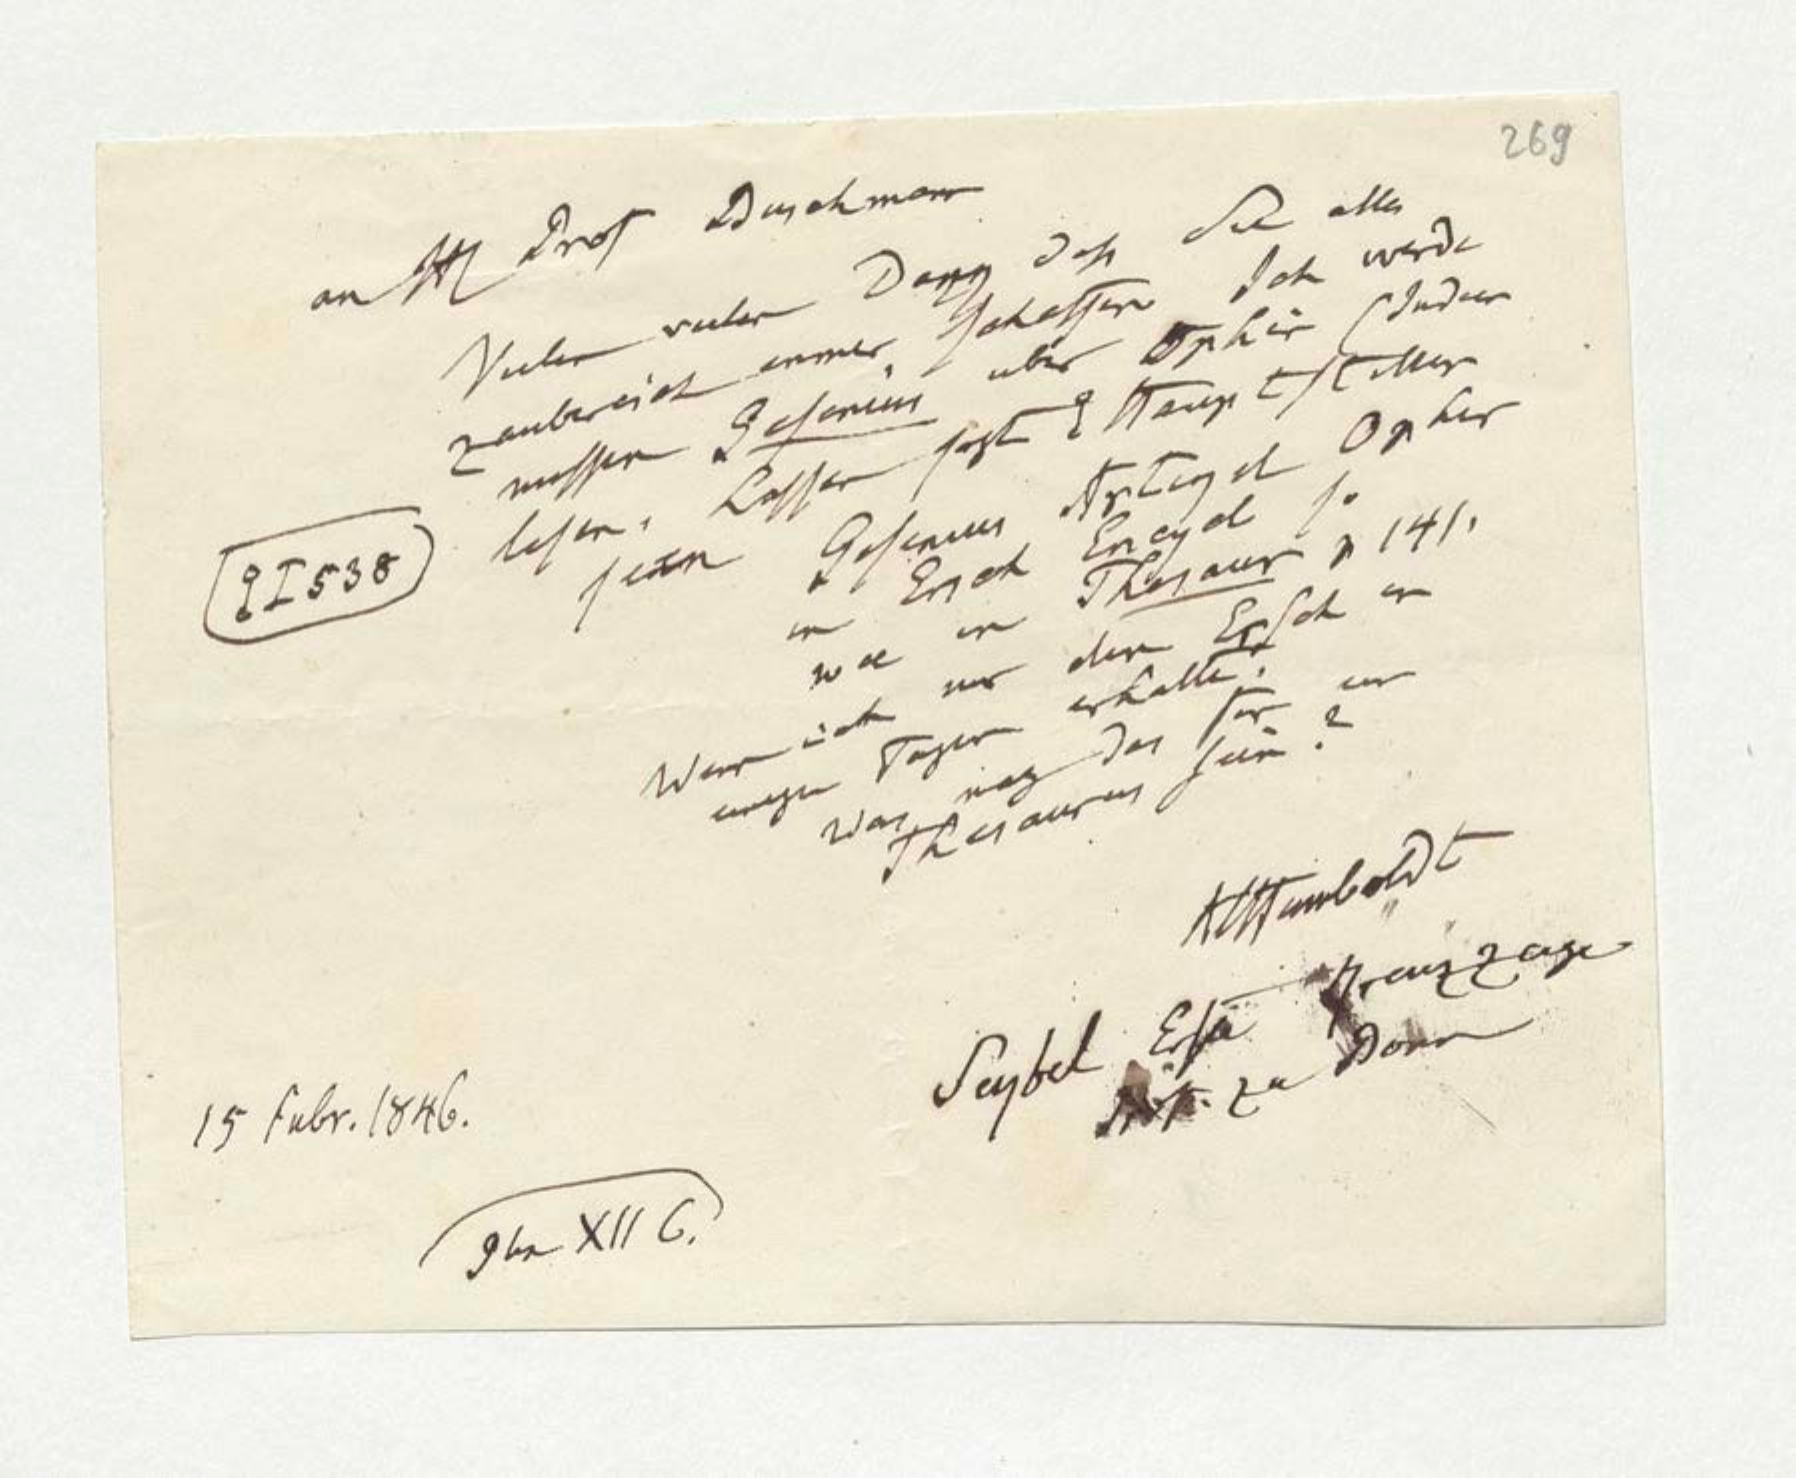 269
an H Prof Buschmann
Vielen vielen Dank daß Sie alles
zaubereich immer schaffen. Ich werde
müssen Gesenius über Ophir (Indien
lesen. Lassen sagt 2 Hauptstellen
seien Gesenius Artikel Ophir
in Ersch Encycl so
wie in Thesaur p 141.
Wenn ich nur den Ersch in
einigen Tagen erhalte.
Was mag das für ein
Thesaurus sein?
AlHumboldt
I 538
Seybel Erste Kreuzzüge
Prof. zu Bonn
15 Febr. 1846.
XII 6.